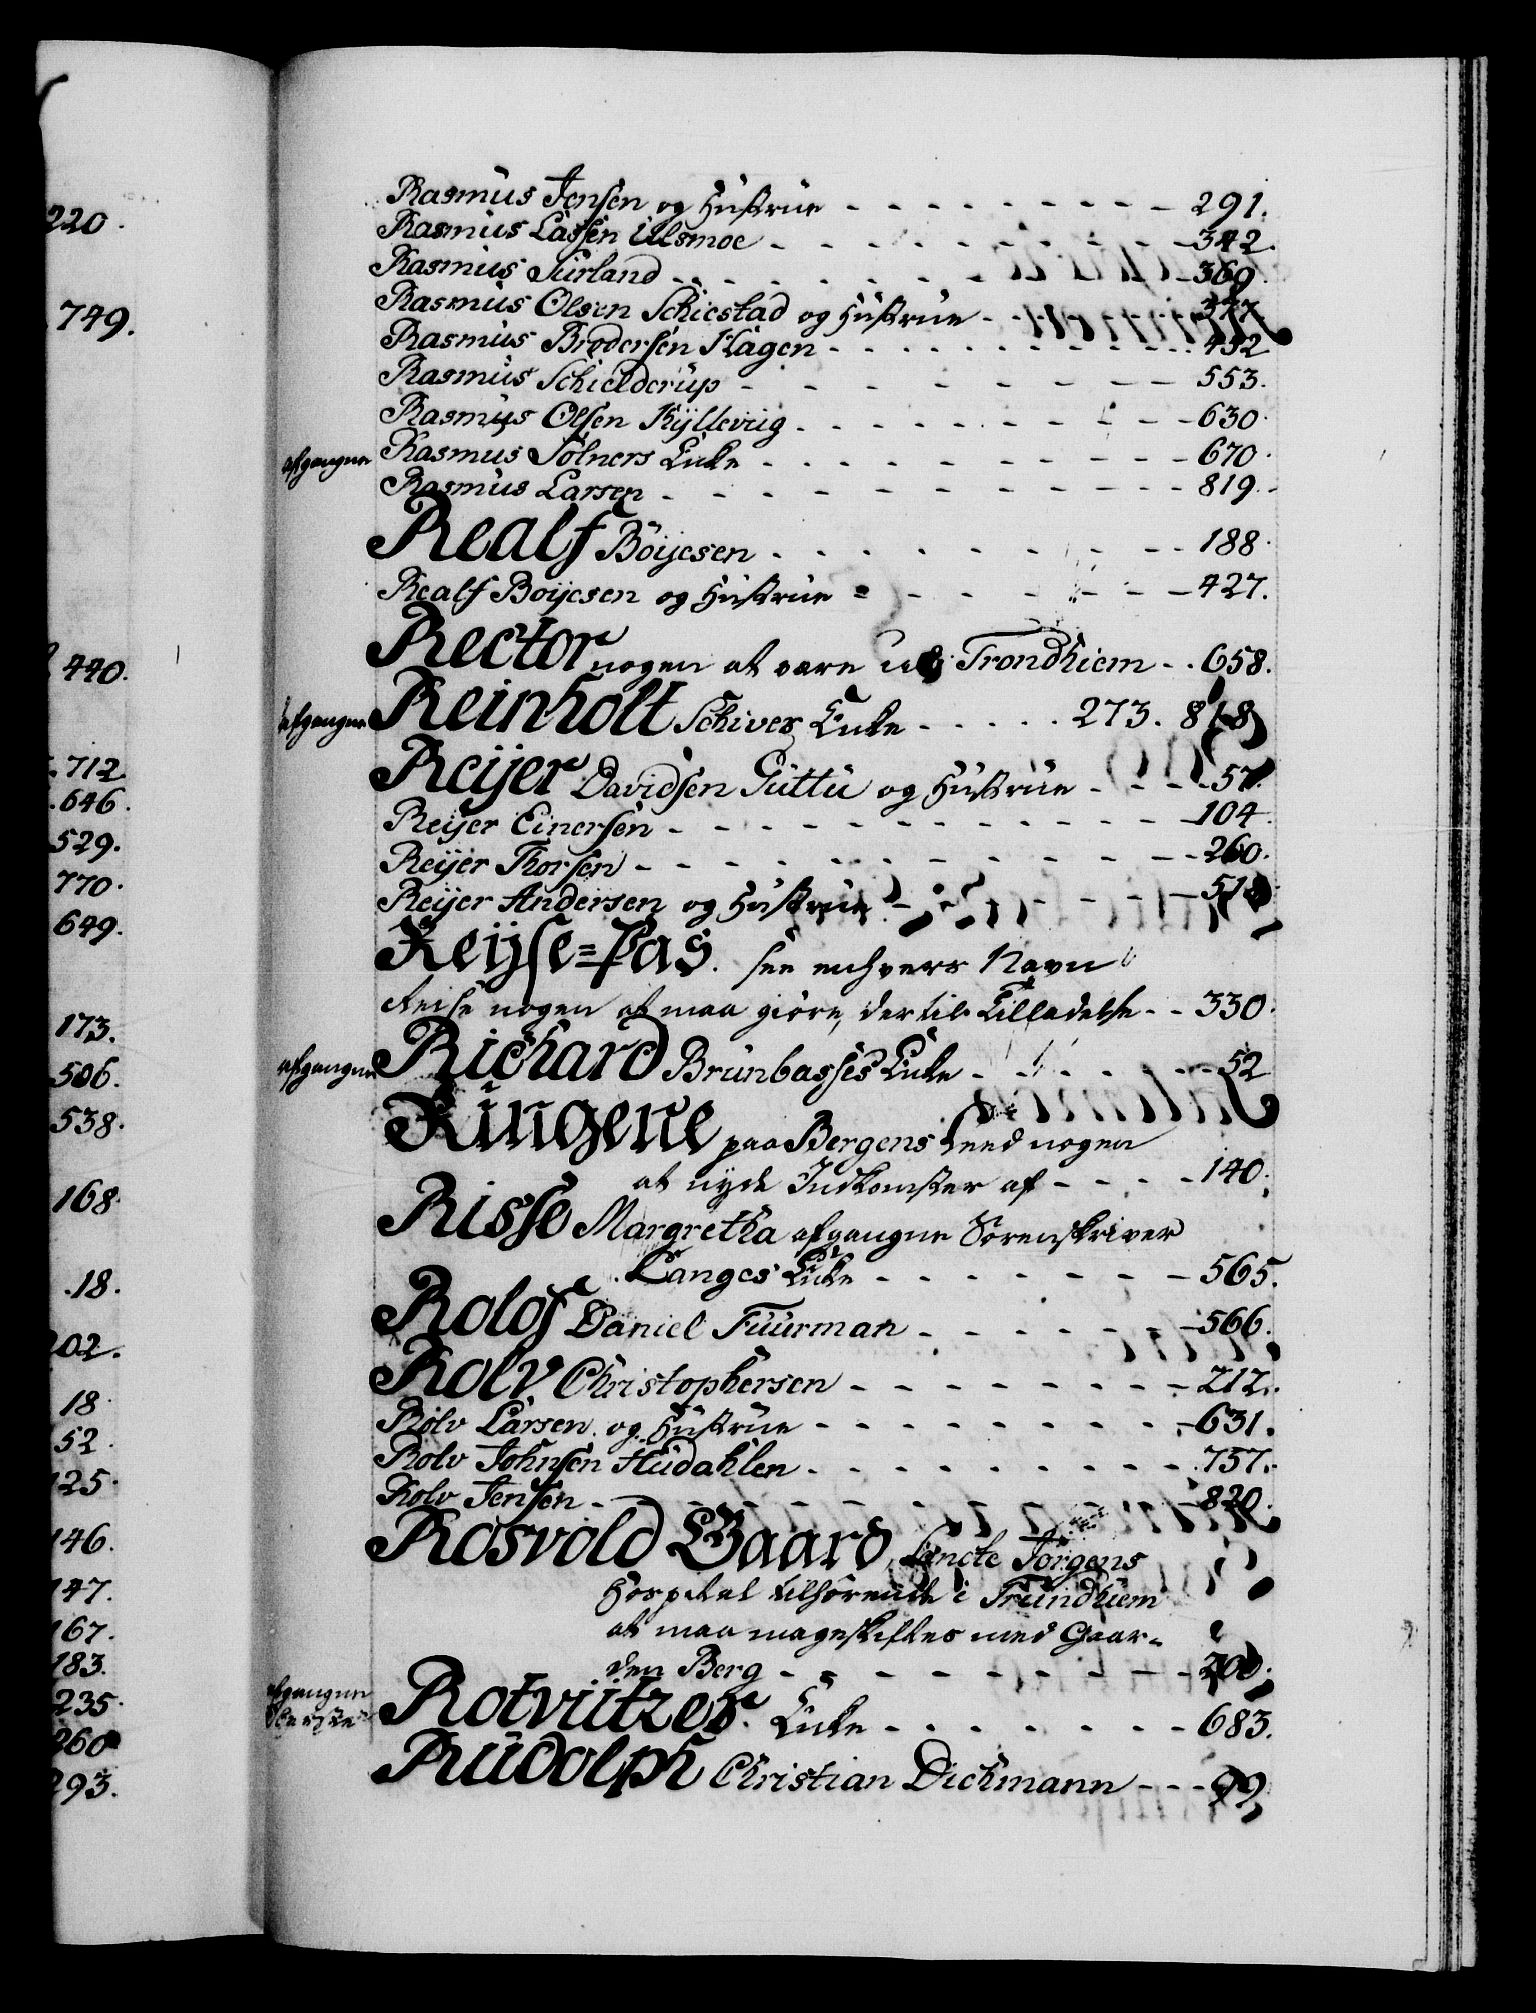 220.
749.
440.
712.
646.
529.
770.
649.
173.
506.
538.
168.
18.
202.
18.
52.
125.
146.
147.
167.
183.
235.
260
293.
Rasmus Jensen og Hustrue - - - 291.
Rasmus Lassen Ulsmoe - - - 342.
Rasmus Surland - - - 369.
Rasmus Olsen Schiestad og Hustrue - - -
Rasmus Brodersen Hagen - - - 452
Rasmus Schielderup - - - 553.
Rasmus Olsen Kyllevug - - - 630.
afgangne Rasmus Tolners Enke - - - 670.
Rasmus Larsen - - - 819.
Realf Böijesen - - - 188.
Realf Böijesen og Hustrue - - - 427.
Rector nogen at vare udj Trondhiem - - 658.
afgangne Reinholt Schivers Enke - - - 273. 818
Reijer Davidsen Guttu og Hustrue - - - 57.
Reijer Einersen - - - 104.
Reijer Thorsen - - - 260.
Reijer Andersen og Hustrue - - - 518
Reijse=Pas. see enhvers Navn
Reise nogen at maa giöre, dertil Tilladelse - - 330.
afgangne Richard Brunbasses Enke - - - 52
Ringene paa Bergens Leed nogen
at nyde Indkomster af - - - 140.
Risse Margretha afgangne Sorenskriver
Langes Enke - - - 565.
Rolof Daniel Fuurman - - - 566.
Rolv Christophersen - - - 212.
Rolv Larsen og Hustrue - - - 631.
Rolv Johnsen Hudahlen - - - 757.
Rolv Jensen - - - 820.
Rosvold Gaard, Sancte Jörgens
Hospital tilhörende i Trundhiem
at maa mageskiftes med Gaar-
den Berg - - - 200.
afgangne Rotvitzes Enke - - - 683.
Rudolph Christian Dichmann - - - 99.